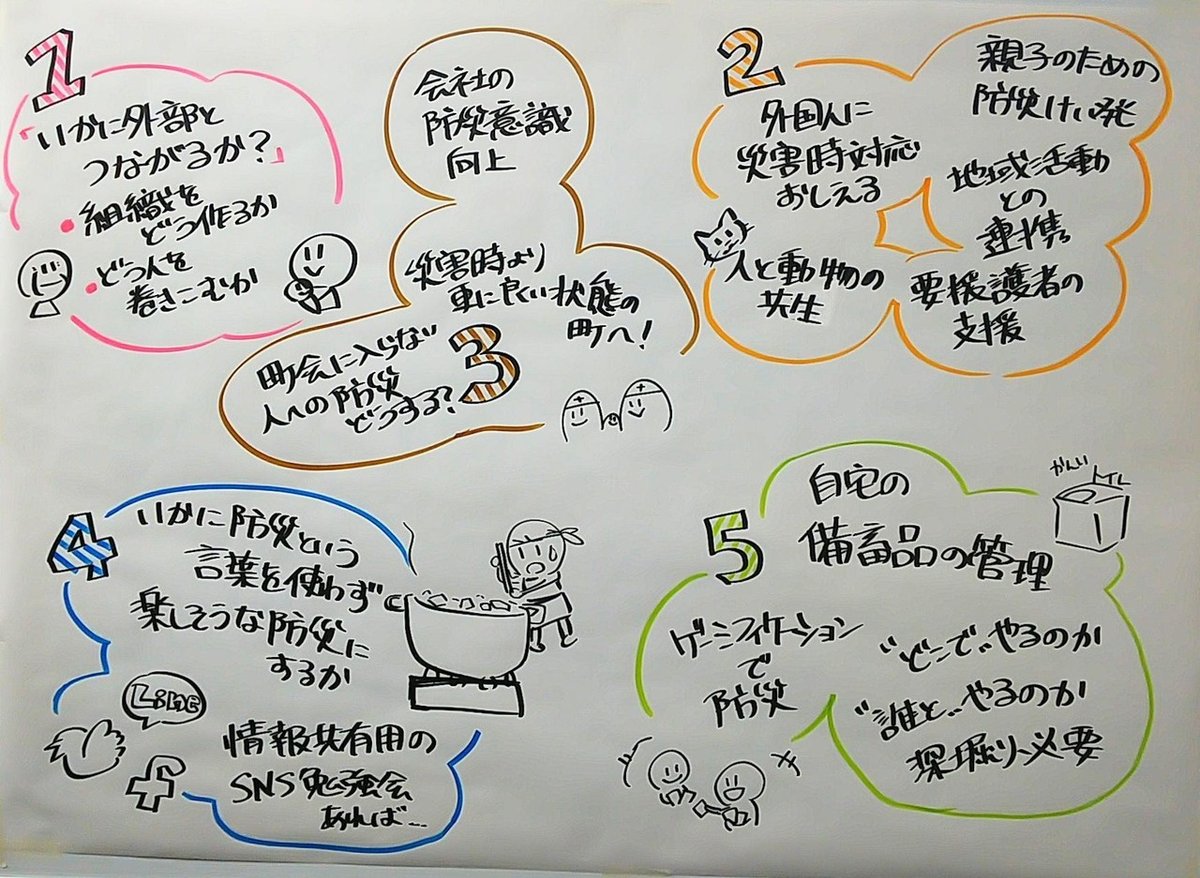 1
「いかに外部と
つながるか？」
・組織を
どう作るか
・どう人を
巻きこむか
2
親子のための
防災けい発
外国人に
災害時対応
おしえる
地域活動
との
連携
人と動物の
共生
要援護者の
支援
3
会社の
防災意識
向上
災害時より
更に良い状態の
町へ！
町会に入らない
人への防災
どうする？
4
いかに防災という
言葉を使わず
楽しそうな防災に
するか
Line
f
情報共有用の
SNS勉強会
あれば…
5
自宅の
備畜品の管理
かんい
トイレ
ゲーミフィケーション
で
防災
"どこで"やるのか
"誰と"やるのか
深堀り必要